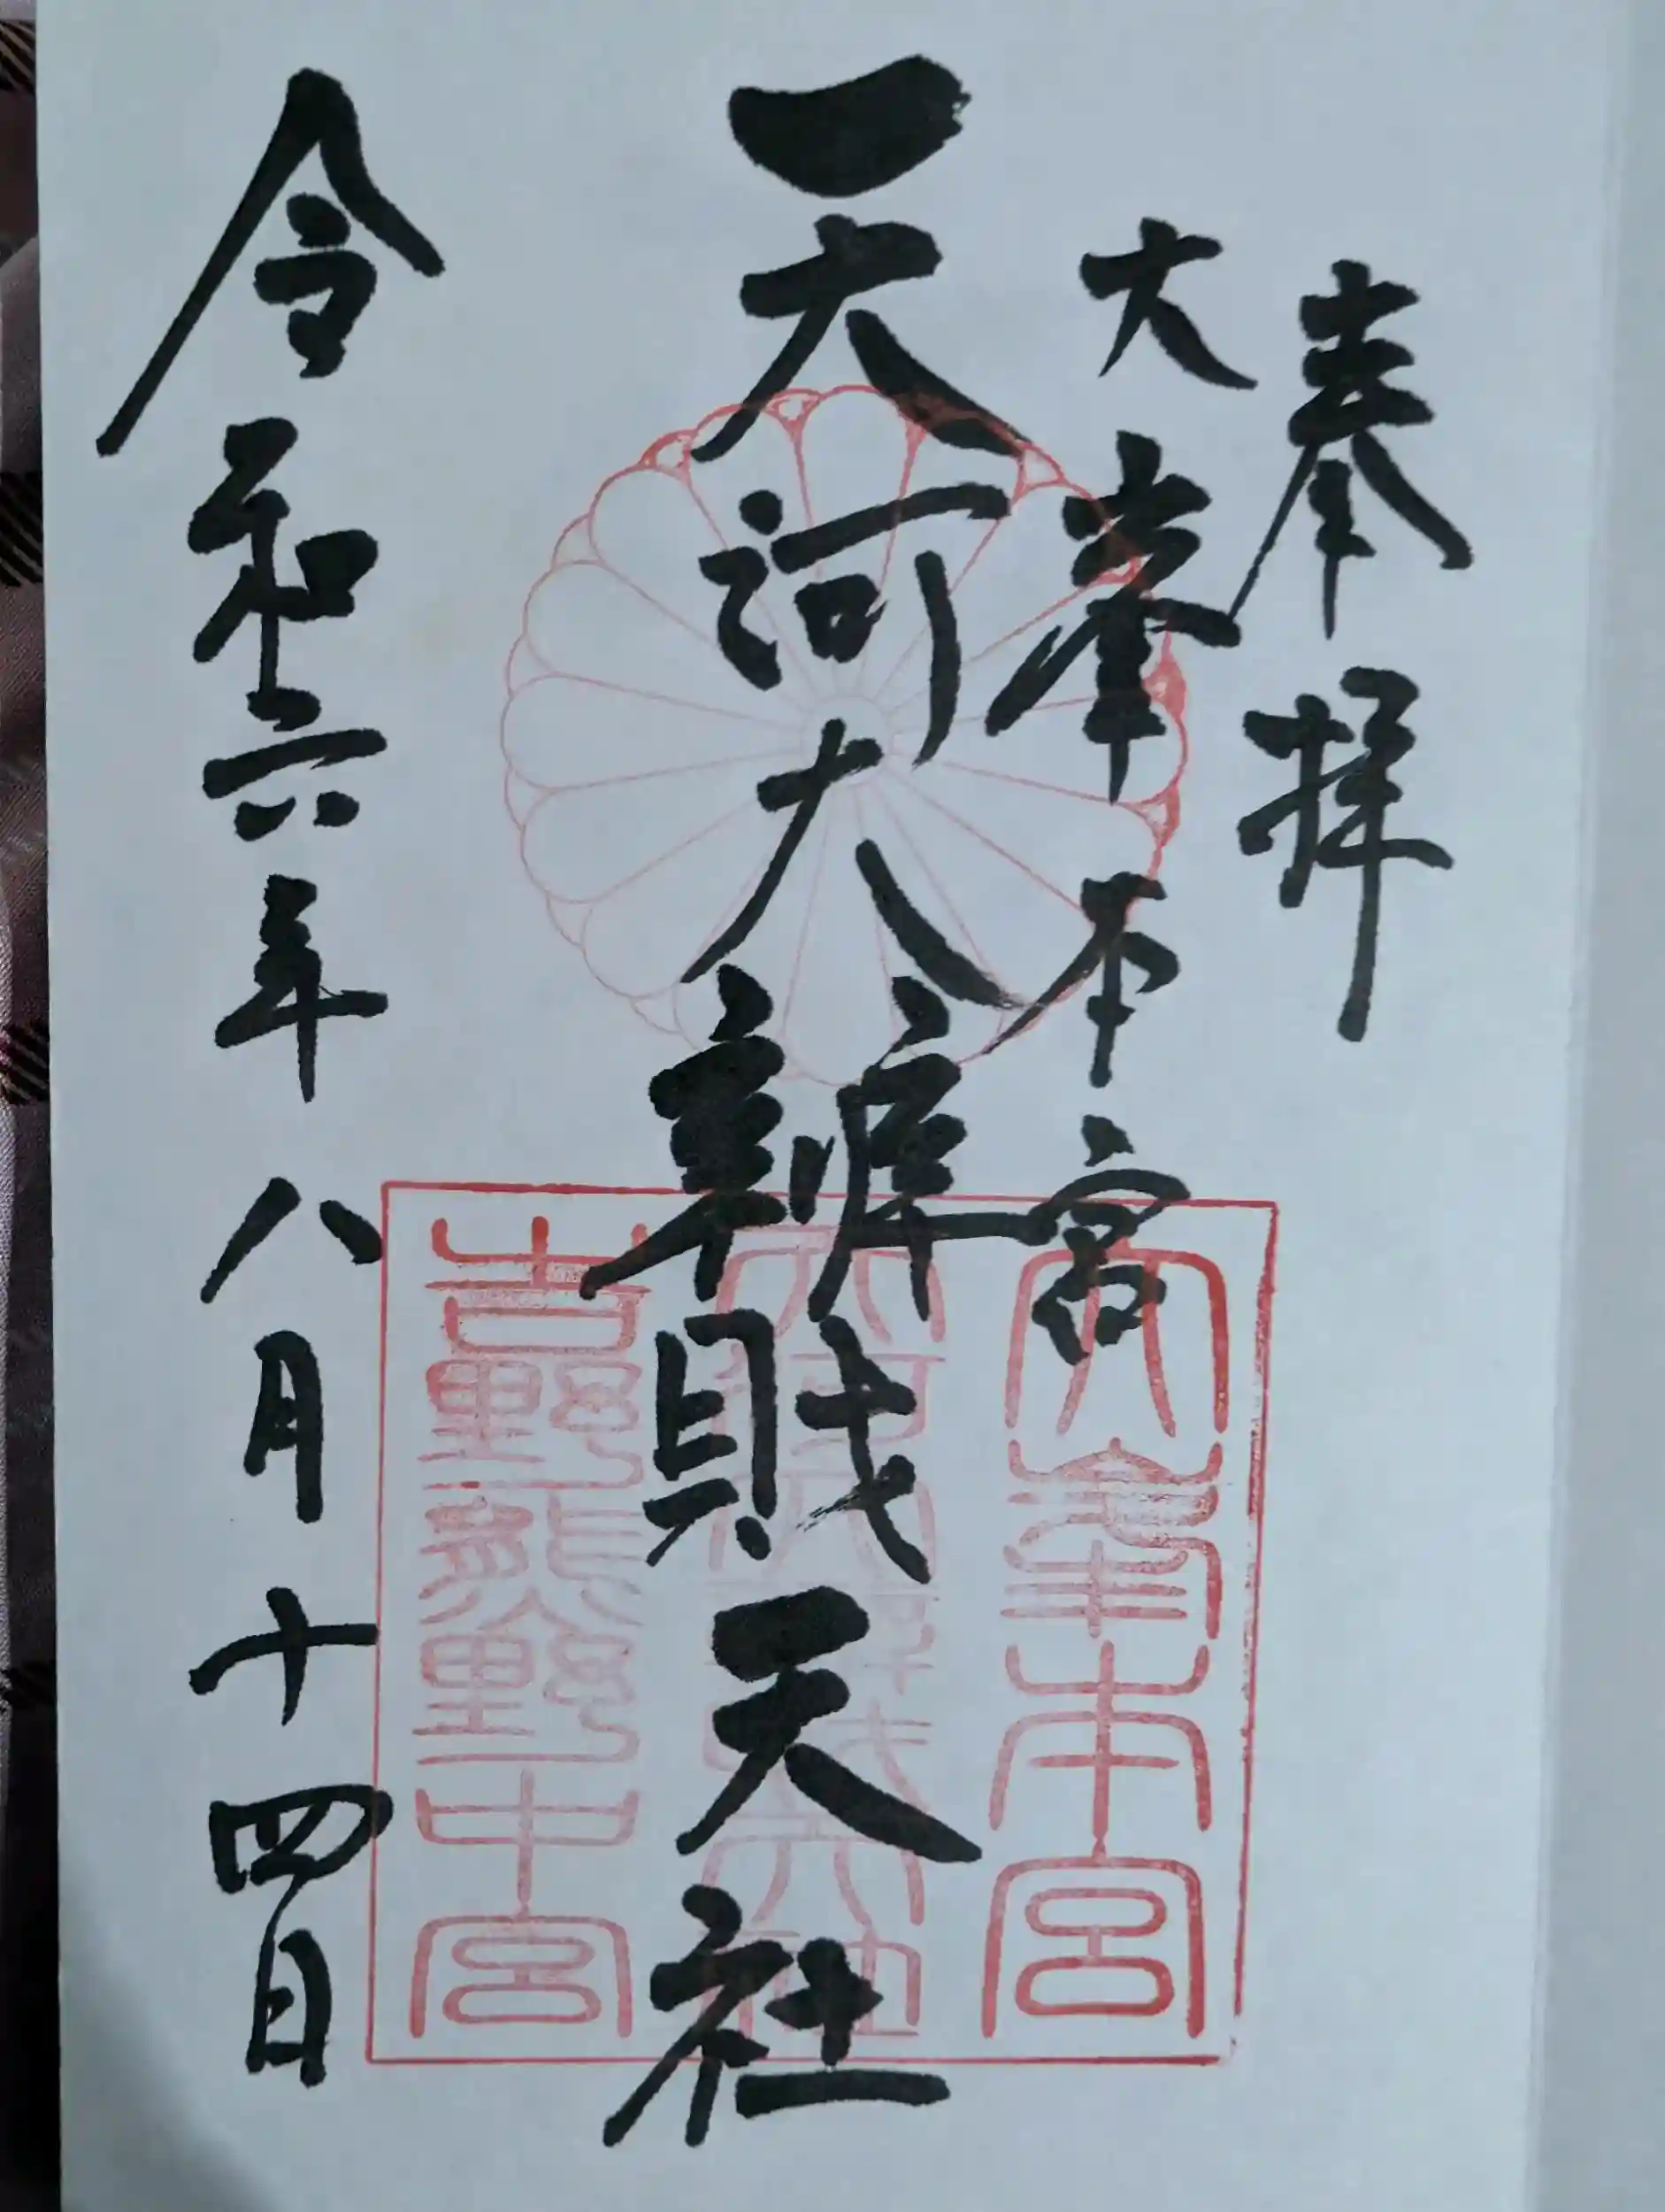 奉拝
大峯本宮
天河大辨財天社
令和六年八月十四日
大峯本宮
天河大辨財天社
吉野熊野中宮